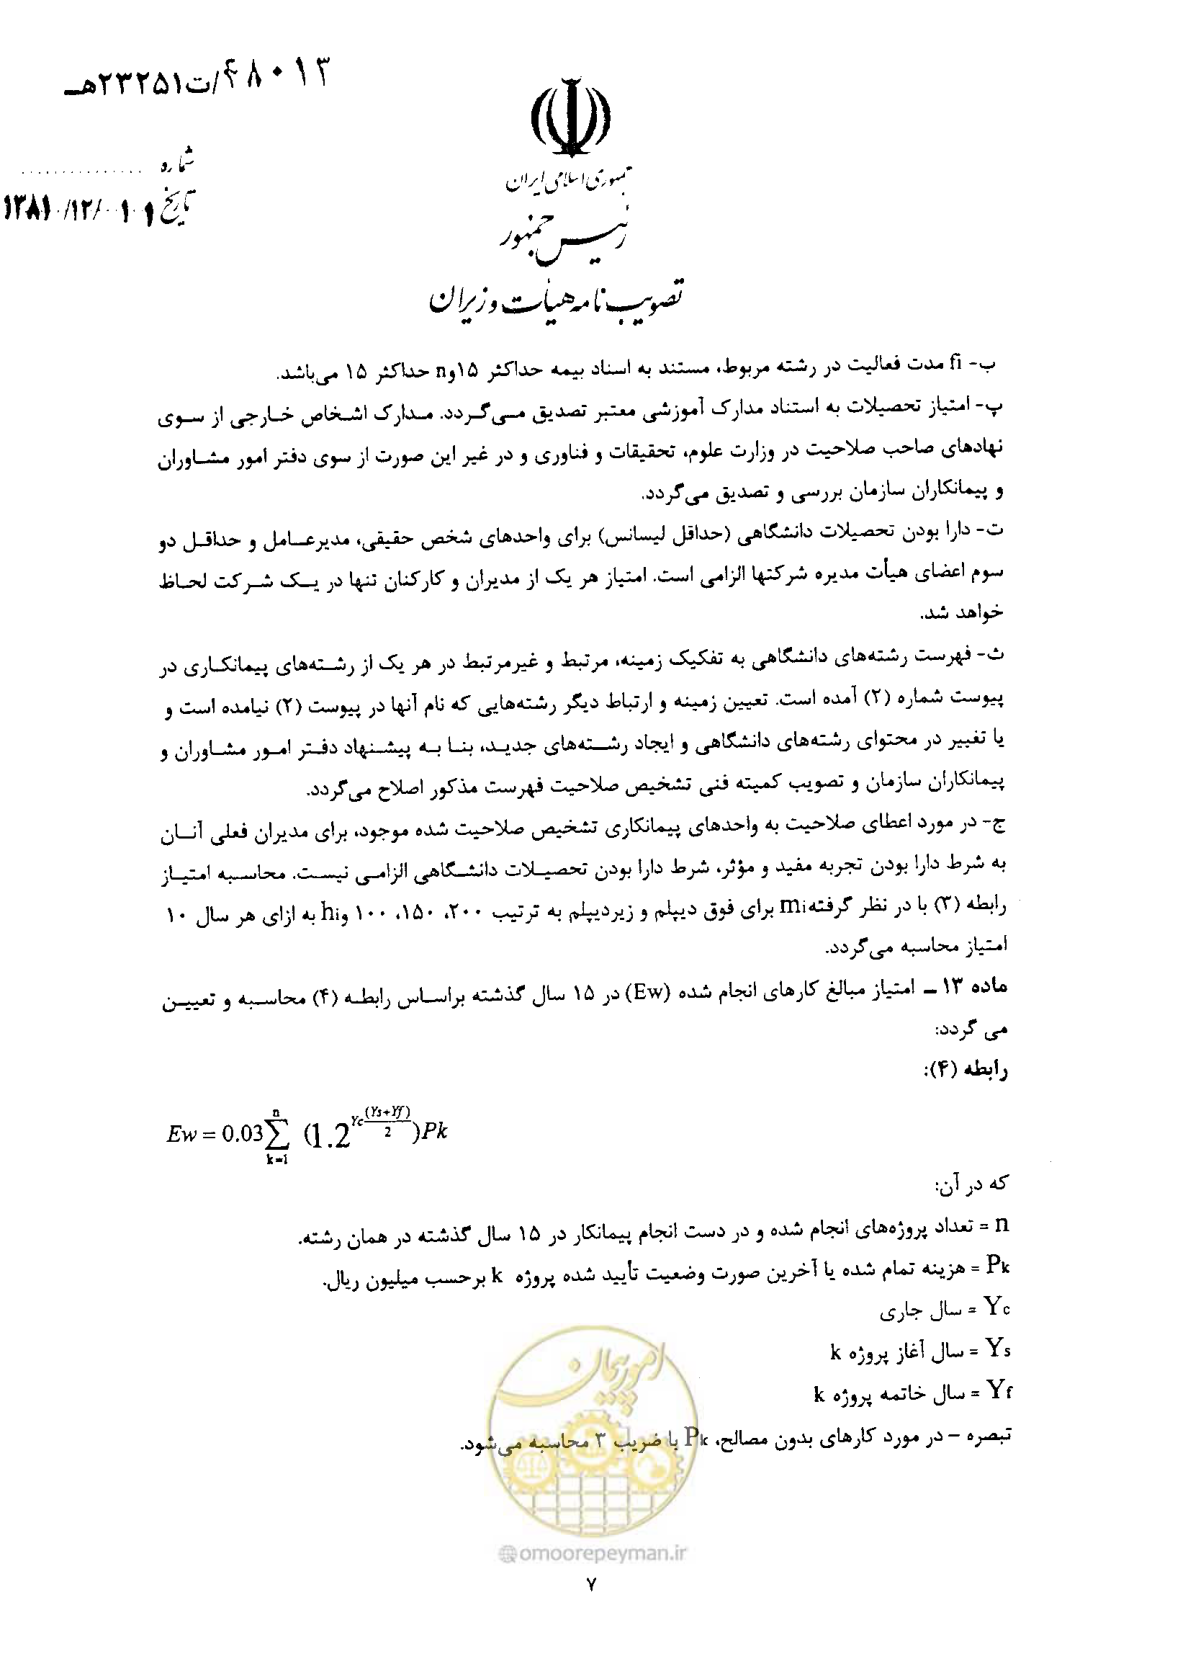 ۴۸۰۱۳/ت۲۳۲۵۱هـ
جمهوری اسلامی ایران
رئیس جمهور
تصویب نامه هیأت وزیران
شماره
تاریخ ۱۳۸۱/۱۲/۰۱
ب- fi مدت فعالیت در رشته مربوط، مستند به اسناد بیمه حداکثر ۱۵وn حداکثر ۱۵ می‌باشد.
پ- امتیاز تحصیلات به استناد مدارک آموزشی معتبر تصدیق می‌گردد. مدارک اشخاص خارجی از سوی
نهادهای صاحب صلاحیت در وزارت علوم، تحقیقات و فناوری و در غیر این صورت از سوی دفتر امور مشاوران
و پیمانکاران سازمان بررسی و تصدیق می‌گردد.
ت- دارا بودن تحصیلات دانشگاهی (حداقل لیسانس) برای واحدهای شخص حقیقی، مدیرعامل و حداقل دو
سوم اعضای هیأت مدیره شرکتها الزامی است. امتیاز هر یک از مدیران و کارکنان تنها در یک شرکت لحاظ
خواهد شد.
ث- فهرست رشته‌های دانشگاهی به تفکیک زمینه، مرتبط و غیرمرتبط در هر یک از رشته‌های پیمانکاری در
پیوست شماره (۲) آمده است. تعیین زمینه و ارتباط دیگر رشته‌هایی که نام آنها در پیوست (۲) نیامده است و
یا تغییر در محتوای رشته‌های دانشگاهی و ایجاد رشته‌های جدید، بنا به پیشنهاد دفتر امور مشاوران و
پیمانکاران سازمان و تصویب کمیته فنی تشخیص صلاحیت فهرست مذکور اصلاح می‌گردد.
ج- در مورد اعطای صلاحیت به واحدهای پیمانکاری تشخیص صلاحیت شده موجود، برای مدیران فعلی آنان
به شرط دارا بودن تجربه مفید و مؤثر، شرط دارا بودن تحصیلات دانشگاهی الزامی نیست. محاسبه امتیاز
رابطه (۳) با در نظر گرفتهmi برای فوق دیپلم و زیردیپلم به ترتیب ۲۰۰، ۱۵۰، ۱۰۰ وhi به ازای هر سال ۱۰
امتیاز محاسبه می‌گردد.
ماده ۱۳ ــ امتیاز مبالغ کارهای انجام شده (Ew) در ۱۵ سال گذشته براساس رابطه (۴) محاسبه و تعیین
می گردد:
رابطه (۴):
Ew = 0.03 ∑ₖ₌₁ⁿ (1.2^(Yc (Ys+Yf)/2))Pk
که در آن:
n = تعداد پروژه‌های انجام شده و در دست انجام پیمانکار در ۱۵ سال گذشته در همان رشته.
Pk = هزینه تمام شده یا آخرین صورت وضعیت تأیید شده پروژه k برحسب میلیون ریال.
Yc = سال جاری
Ys = سال آغاز پروژه k
Yf = سال خاتمه پروژه k
تبصره – در مورد کارهای بدون مصالح، Pk با ضریب ۳ محاسبه می‌شود.
امور پیمان
omoorepeyman.ir
۷